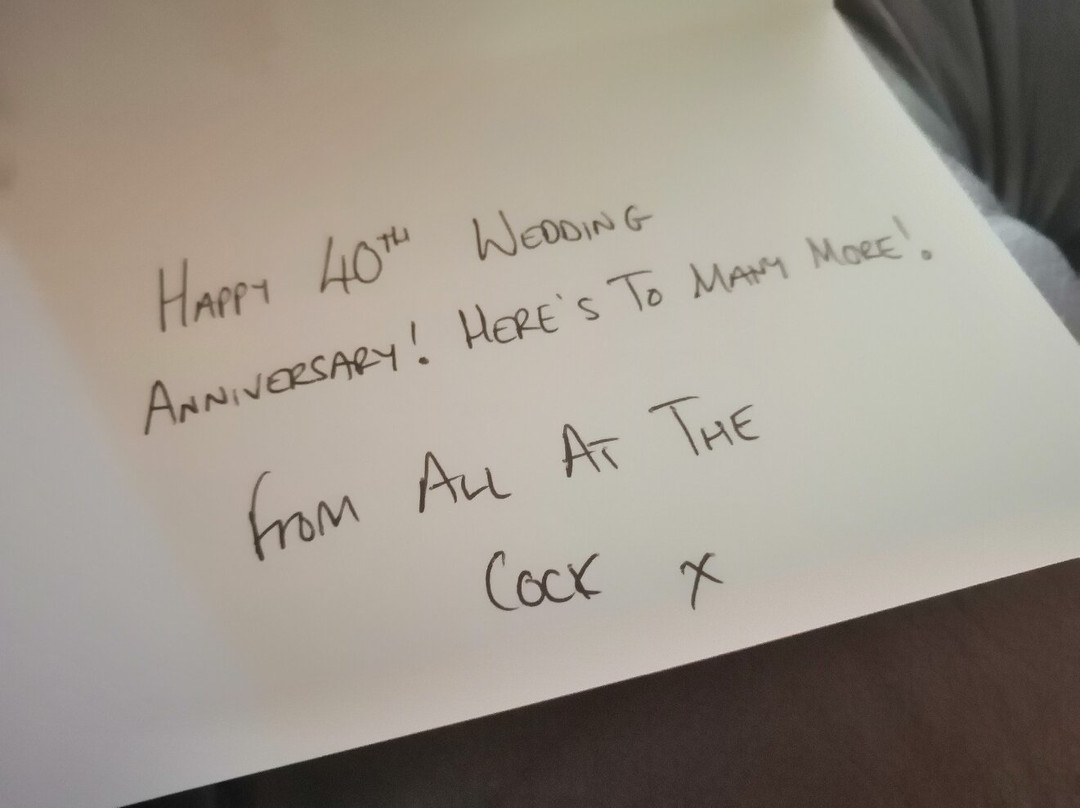 HAPPY 40TH WEDDING
ANNIVERSARY! HERE'S TO MANY MORE!
FROM ALL AT THE
COCK X